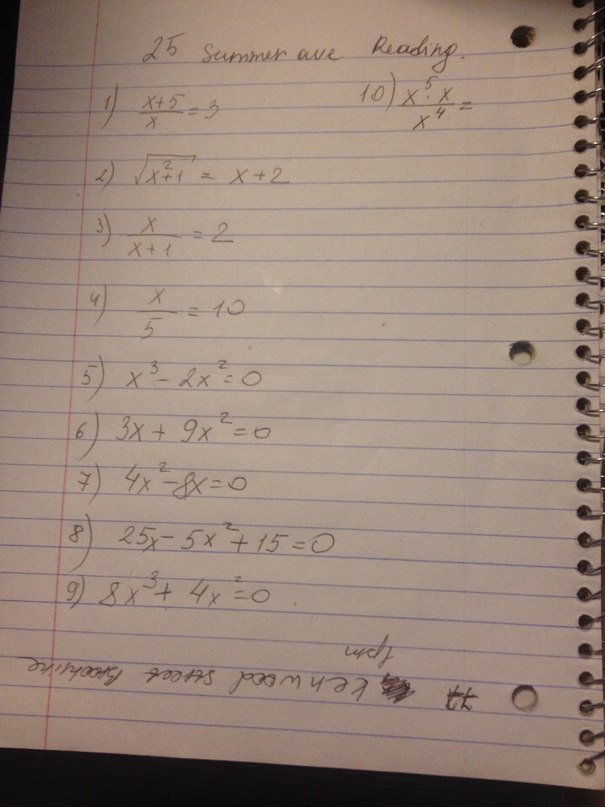 25 Summer ave Reading.
1) x+5/x = 3
10) x⁵·x/x⁴ =
2) √x²+1 = x+2
3) x/x+1 = 2
4) x/5 = 10
5) x³ - 2x² = 0
6) 3x + 9x² = 0
7) 4x² - 8x = 0
8) 25x - 5x² + 15 = 0
9) 8x³ + 4x² = 0
77 Kenwood street Brookline
1pm